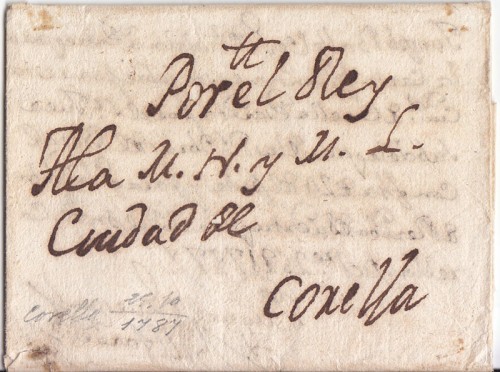 tt
Por el Rey
A la M. N. y M. L.
Ciudad de
Corella
Corella 1787